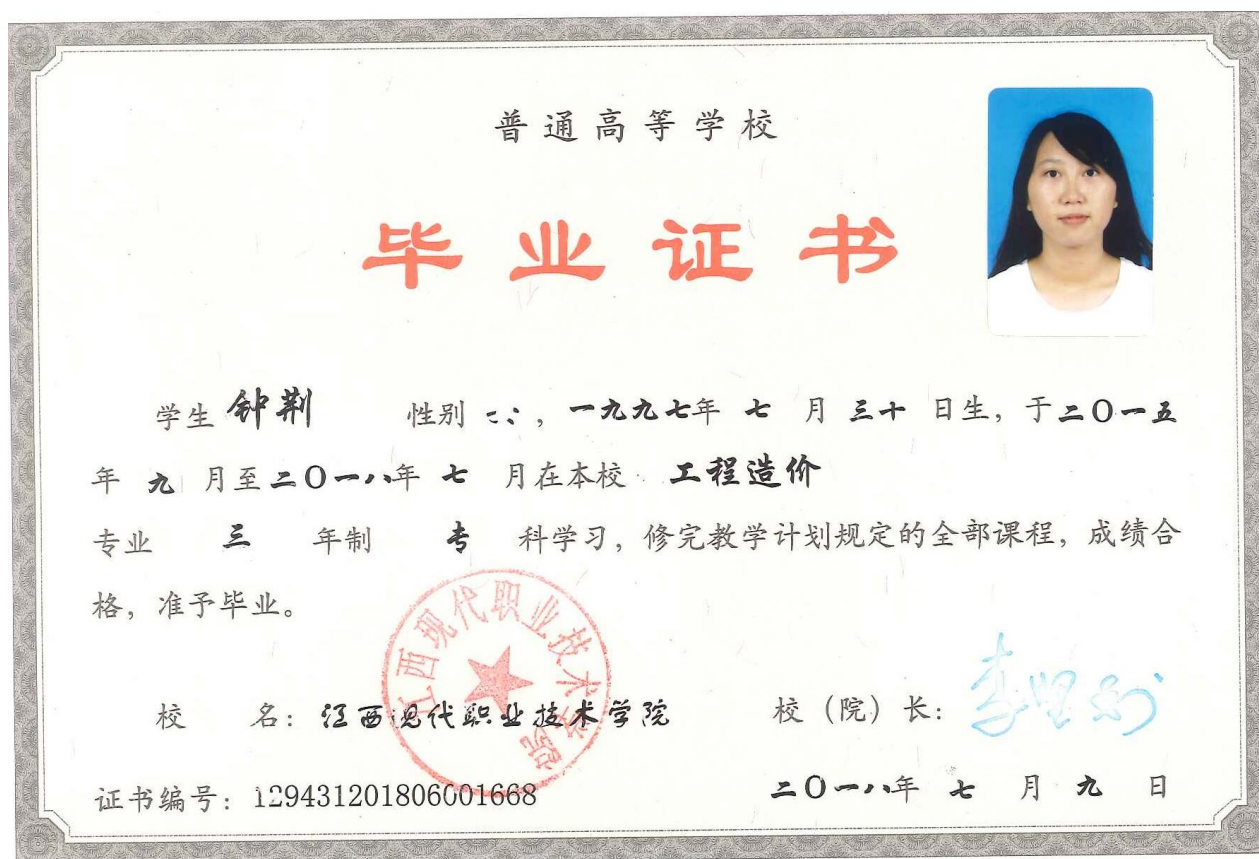 普通高等学校
毕业证书
学生 钟荆 性别 ，一九九七年 七 月 三十 日生，于二〇一五
年 九 月至二〇一八年 七 月在本校 工程造价
专业 三 年制 专 科学习，修完教学计划规定的全部课程，成绩合
格，准予毕业。
江西现代职业技术学院
校 名：江西现代职业技术学院 校（院）长：
证书编号：129431201806001668 二〇一八年 七 月 九 日